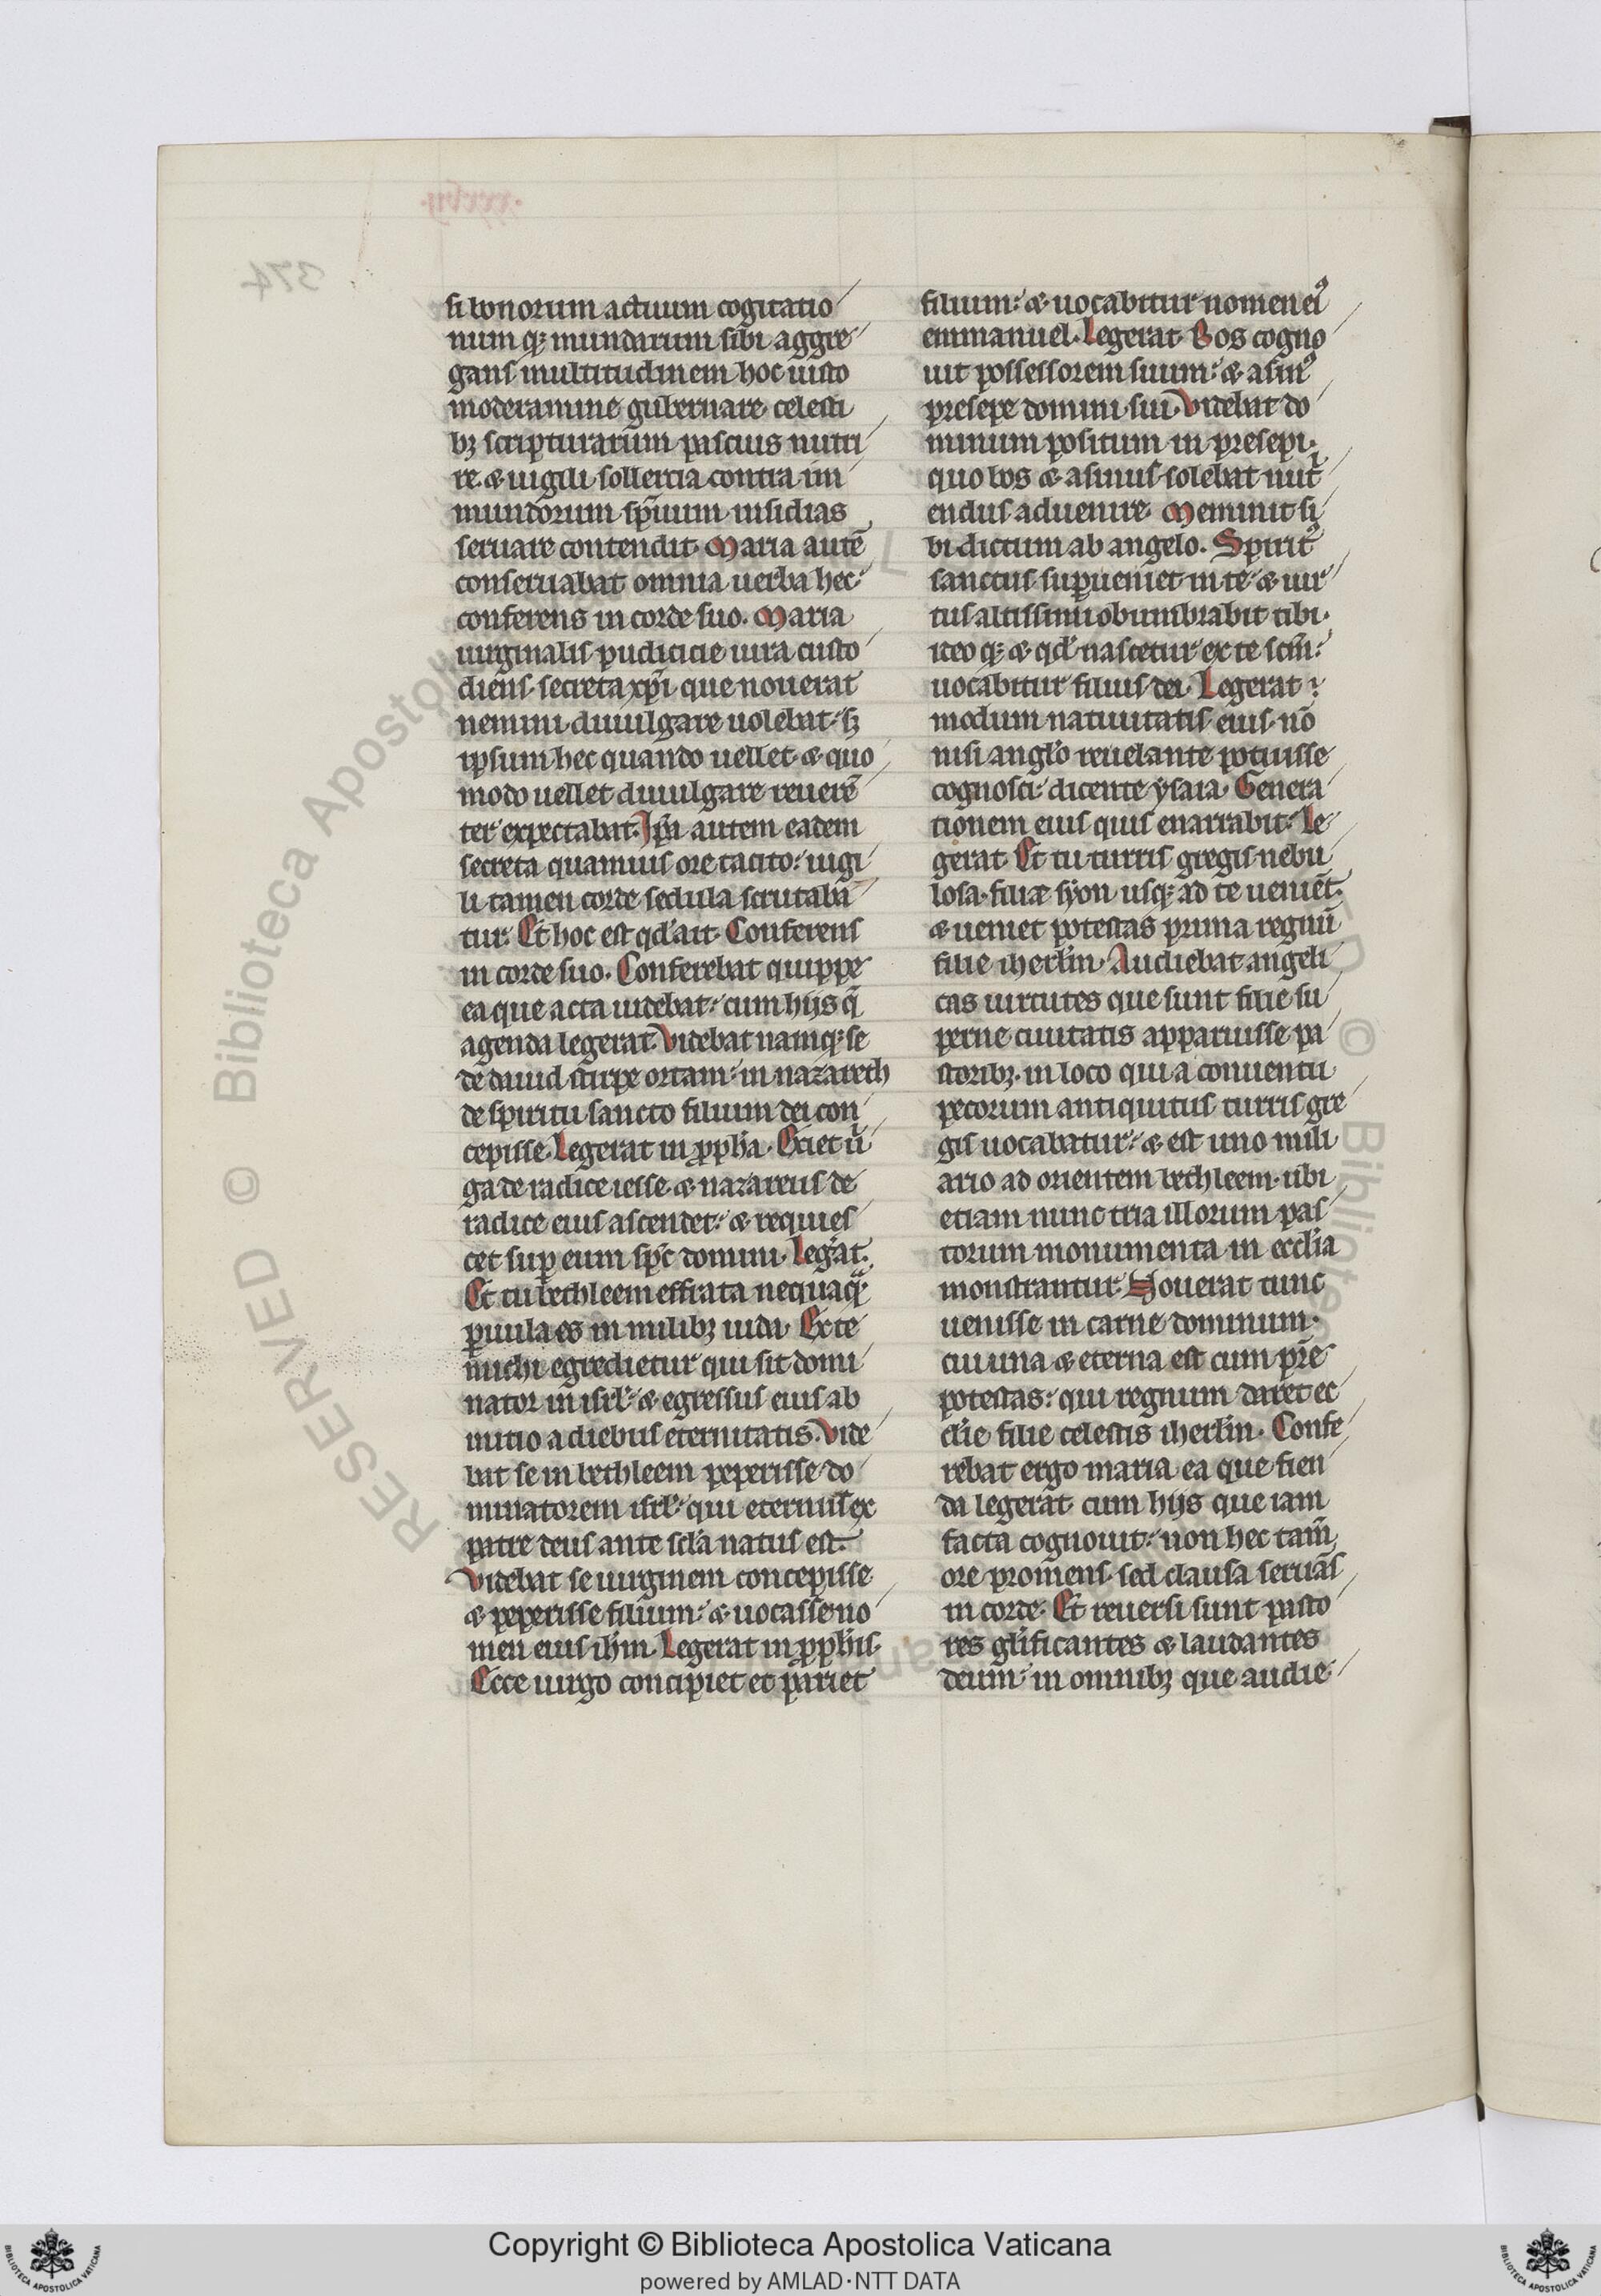 si bonorum actuum cogitatio
num qꝫ mundarum sibi aggre
gans multitudinem hoc iusto
moderamine gubernare celesti
bꝫ scripturarum pascuis nutri
re. & uigili sollercia contra im
mundorum sp̄uum insidias
seruare contendit. Maria autē
conseruabat omnia uerba hec
conferens in corde suo. Maria
uirginalis pudicicie iura custo
diens. secreta xp̄i que nouerat
nemini diuulgare uolebat. sꝫ
ipsum hec quando uellet & quo
modo uellet diuulgare reuerē
ter expectabat. Ip̄a autem eadem
secreta quamuis ore tacito. uigi
li tamen corde sedula scrutaba
tur. Et hoc est qd̓ ait. Conferens
in corde suo. Conferebat quippe
ea que acta uidebat. cum hijs q̄
agenda legerat. Videbat namqꝫ se
de dauid stirpe ortam. in nazareth
de spiritu sancto filium dei con
cepisse. Legerat in ꝓph̄a. Exiet ū
ga de radice iesse. & nazareus de
radice eius ascendet. & requies
cet suꝑ eum sp̄c domini. Legāt.
Et tu bethleem effrata nequaqᷓ
ꝑuula es in milibꝫ iuda. Ex te
michi egredietur qui sit domi
nator in isrl̓. & egressus eius ab
initio a diebus eternitatis. Vide
bat se in bethleem peperisse do
minatorem isrl̓. qui eternus ex
patre deus ante scl̓a natus est.
Videbat se uirginem concepisse
& peperisse filium. & uocasse no
men eius ih̄m. Legerat in ꝓph̄is.
Ecce uirgo concipiet et pariet
filium. & uocabitur nomen eiꝰ
emmanuel. Legerat. Bos cogno
uit possessorem suum. & asinꝰ
presepe domini sui. Videbat do
minum positum in presepi.
quo bos & asinus solebat nut͛
endus aduenire. Meminit si
bi dictum ab angelo. Spiritꝰ
sanctus suꝑueniet in te. & uir
tus altissimi obumbrabit tibi.
ideo qꝫ & qd̓ nascetur ex te scm̄.
uocabitur filius dei. Legerat
modum natiuitatis eius. nō
nisi angl̓o reuelante potuisse
cognosci. dicente ysaia. Genera
tionem eius quis enarrabit. Le
gerat. Et tu turris gregis nebu
losa. filiæ syon usqꝫ ad te ueniēt.
& ueniet potestas prima regnū
filie iherl̓m. Audiebat angeli
cas uirtutes que sunt filie su
perne ciuitatis apparuisse pa
storibꝫ. in loco qui a conuentu
pecorum antiquitus turris gre
gis uocabatur. & est uno mili
ario ad orientem bethleem. ubi
etiam nunc tria illorum pas
torum monumenta in eccl̓ia
monstrantur. Nouerat tunc
uenisse in carne dominum.
cui una & eterna est cum pr̄e
potestas. qui regnum daret ec
cl̓ie filie celestis iherl̓m. Confe
rebat ergo maria ea que fien
da legerat cum hijs que iam
facta cognouit. non hec tam̄
ore promens. sed clausa seruās
in corde. Et reuersi sunt pasto
res gl̓ificantes & laudantes
deum. in omnibꝫ que audie
Copyright © Biblioteca Apostolica Vaticana
powered by AMLAD·NTT DATA